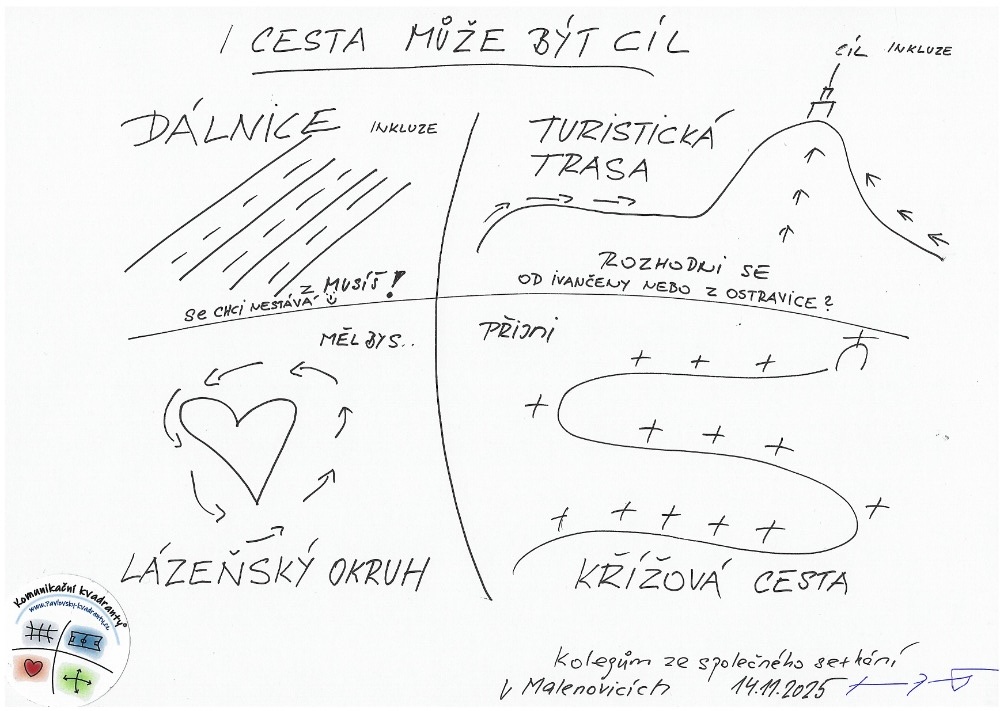 I CESTA MŮŽE BÝT CÍL
DÁLNICE INKLUZE
SE CHCI NESTÁVÁ Z MUSÍŠ!
TURISTICKÁ
TRASA
CÍL INKLUZE
ROZHODNI SE
OD IVANČENY NEBO Z OSTRAVICE?
MĚL BYS..
LÁZEŇSKÝ OKRUH
PŘIJMI
KŘÍŽOVÁ CESTA
Komunikační kvadranty®
www.pavlovsky-kvadranty.cz
Kolegům ze společného setkání
v Malenovicích 14.11.2025